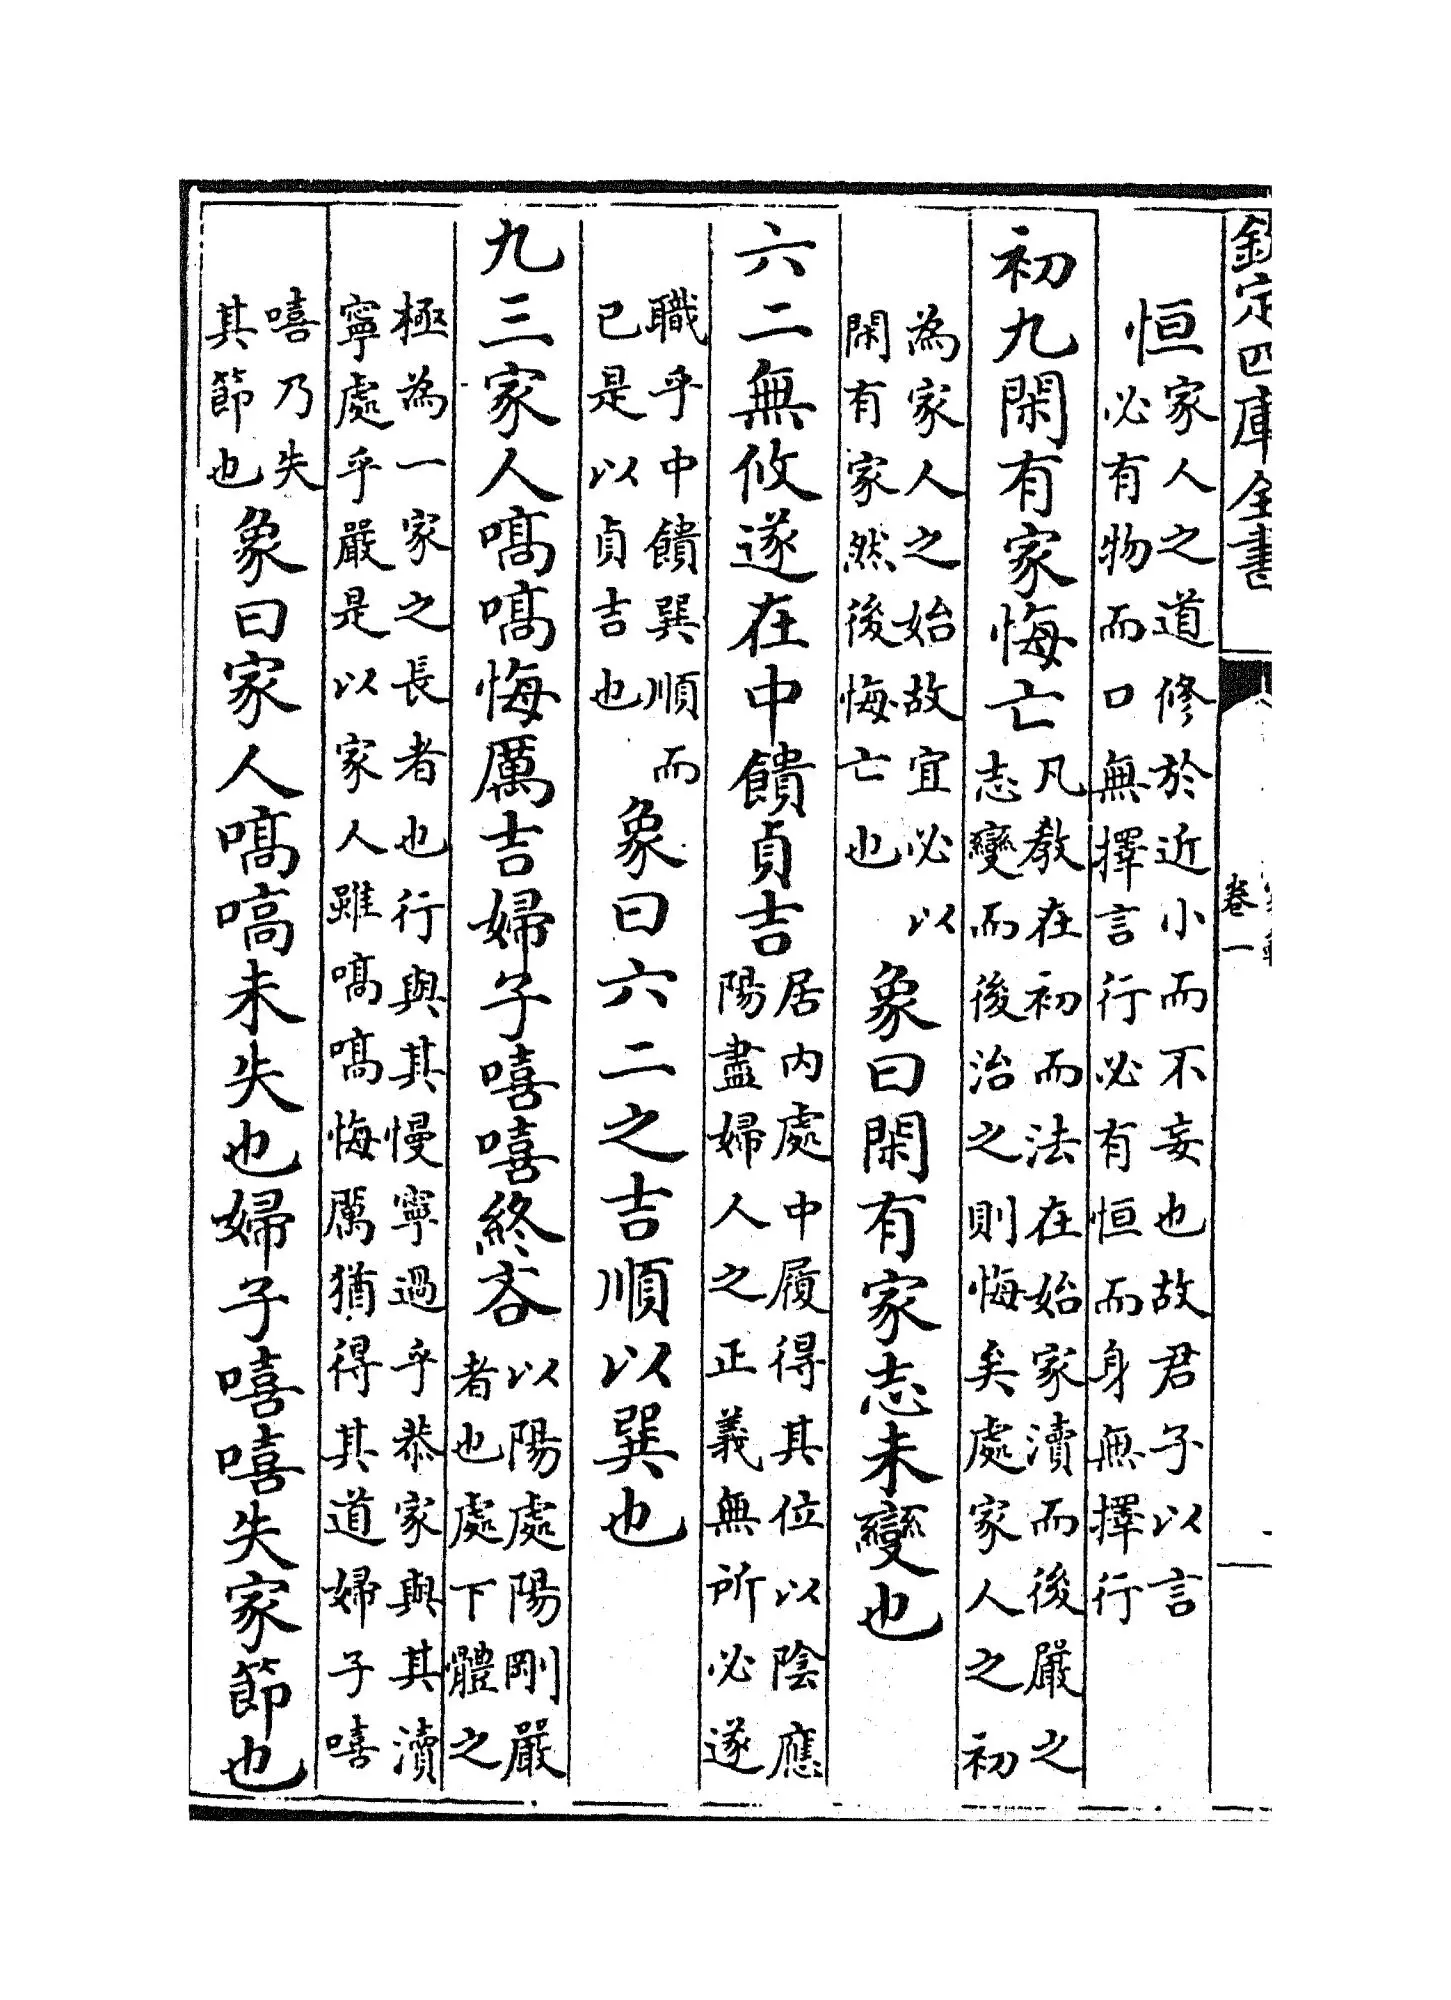 欽定四庫全書
卷一
恒
家人之道修於近小而不妄也故君子以言
必有物而口無擇言行必有恒而身無擇行
初九閑有家悔亡
凡教在初而法在始家瀆而後嚴之
志變而後治之則悔矣處家人之初
為家人之始故宜必以
閑有家然後悔亡也
象曰閑有家志未變也
六二無攸遂在中饋貞吉
居内處中履得其位以陰應
陽盡婦人之正義無所必遂
職乎中饋巽順而
已是以貞吉也
象曰六二之吉順以巽也
九三家人嗃嗃悔厲吉婦子嘻嘻終吝
以陽處陽剛嚴
者也處下體之
極為一家之長者也行與其慢寧過乎恭家與其瀆
寧處乎嚴是以家人雖嗃嗃悔厲猶得其道婦子嘻
嘻乃失
其節也
象曰家人嗃嗃未失也婦子嘻嘻失家節也